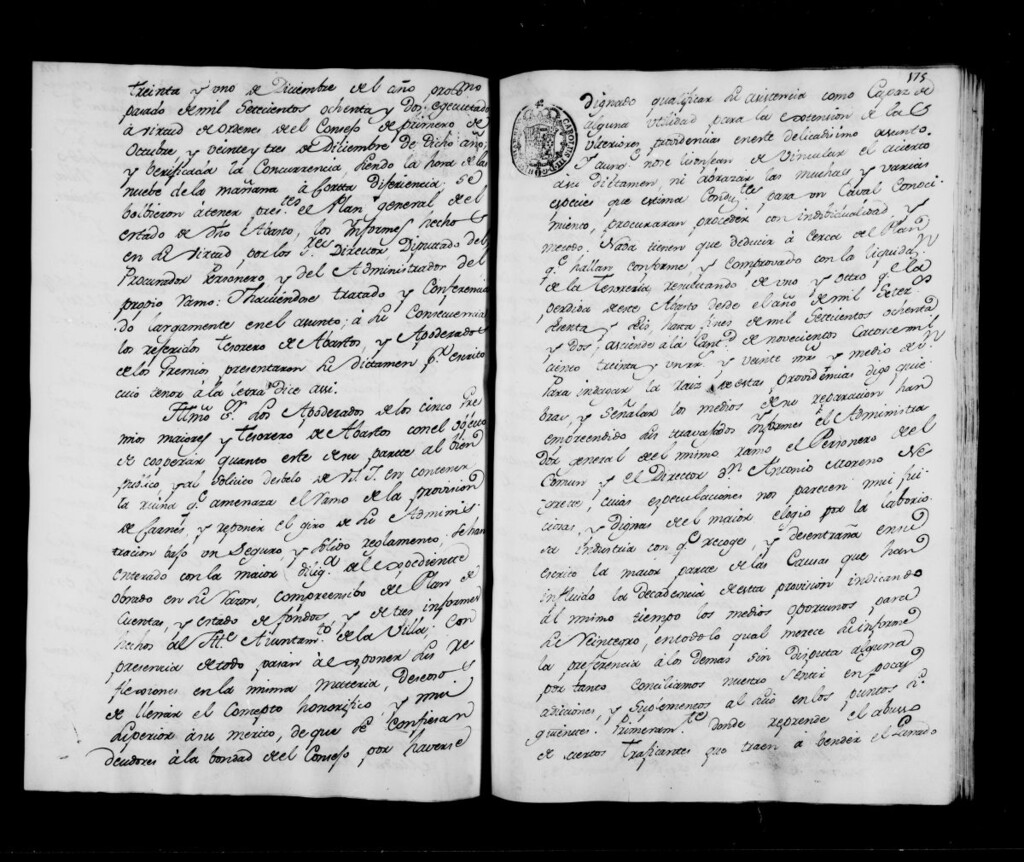 treinta y uno de Diciembre del año proximo
pasado de mil setecientos ochenta y dos, egecutado
á virtud de ordenes del Consejo de primero de
Octubre, y veinte y tres de Diciembre de dicho año,
y Verificada la Concurrencia, siendo la hora de las
nuebe de la mañana á corta diferiencia, se
bolbieron á tener pres.tes el Plan general del
estado de dho Abasto, los Informes hechos
en su virtud, por los S.res Director, Diputado del
Procurador Personero, y del Administrador del
propio Ramo: Y haviendose tratado y Conferencia
do largamente en el asunto; á su Consecuencia
los referidos Tesorero de Abastos, y Apoderados
de los Gremios presentaron su dictamen p.r escrito
cuio tenor á la letra dice asi.
Illmo S.or Los Apoderados de los cinco Gre
mios maiores y Tesorero de Abastos con el obgeto
de cooperar quanto este de su parte al bien
publico y al solicito desbelo de V.S.I. en contener
la ruina q.e amenaza el Ramo de la provision
de Carnes, y reponer el giro de su Adminis
tracion bajo un Seguro, y solido reglamento, se han
enterado con la maior dilig.a del expediente
obrado en su razon, comprensibo de Plan de
Cuentas, y estado de fondos, y de tres informes
hechos al Ill.e Ayuntam.to de la Villa; Con
presencia de todo pasan á exponer sus re
flexiones en la misma materia, deseosos
de llenar el Concepto honorifico y mui
superior á su merito, de que se confiesan
deudores á la bondad del Consejo, por haverse
175
CAROLUS
dignado qualificar su asistencia como Capaz de
alguna utilidad para la extension de las
ulteriores providencias en este delicadisimo asunto.
Y aunq.e no se lisonjean de Vincular el acierto
á su dictamen, ni abrazar las muchas y varias
especies que estima Condu.tes para un Caval Conoci
miento, procuraran proceder con indibidualidad y
metodo. Nada tienen que deducir á cerca del Plan
q.e hallan conforme, y comprovado con la liquida.n
de la Tesoreria, resultando de uno y otro q.e la
perdida de este Abasto desde el año de mil Setez.s
setenta y seis, hasta fines de mil Setecientos ochenta
y dos, asciende á la Cant.d de novecientos Catorce mil
ciento treinta y un r.s y veinte mrs y medio de v.n
Para indagar la raiz de estas, providencias digo quie
bras, y señalar los medios de su reparacion han
emprendido sus travajados Informes el Administra
dor general del mismo ramo el Personero del
Comun y el Director D.n Antonio Moreno Ne
grete, cuias especulaciones nos parecen mui jui
ciosas, y Dignas del maior elogio por la laborio
sa industria con q.e recoge, y desentraña en su
escrito la maior parte de las Causas que han
influido la decadencia de esta provision indicando
al mismo tiempo los medios oportunos para
su Reintegro, en todo lo qual merece su informe
la preferencia á los demas sin disputa alguna
por tanto conciliamos nuestro sentir en pocas
adiciones, y Suplementos al suio en los puntos si
guientes. Primeram.te donde reprende el abuso
de ciertos Traficantes que traen á bender el Ganado